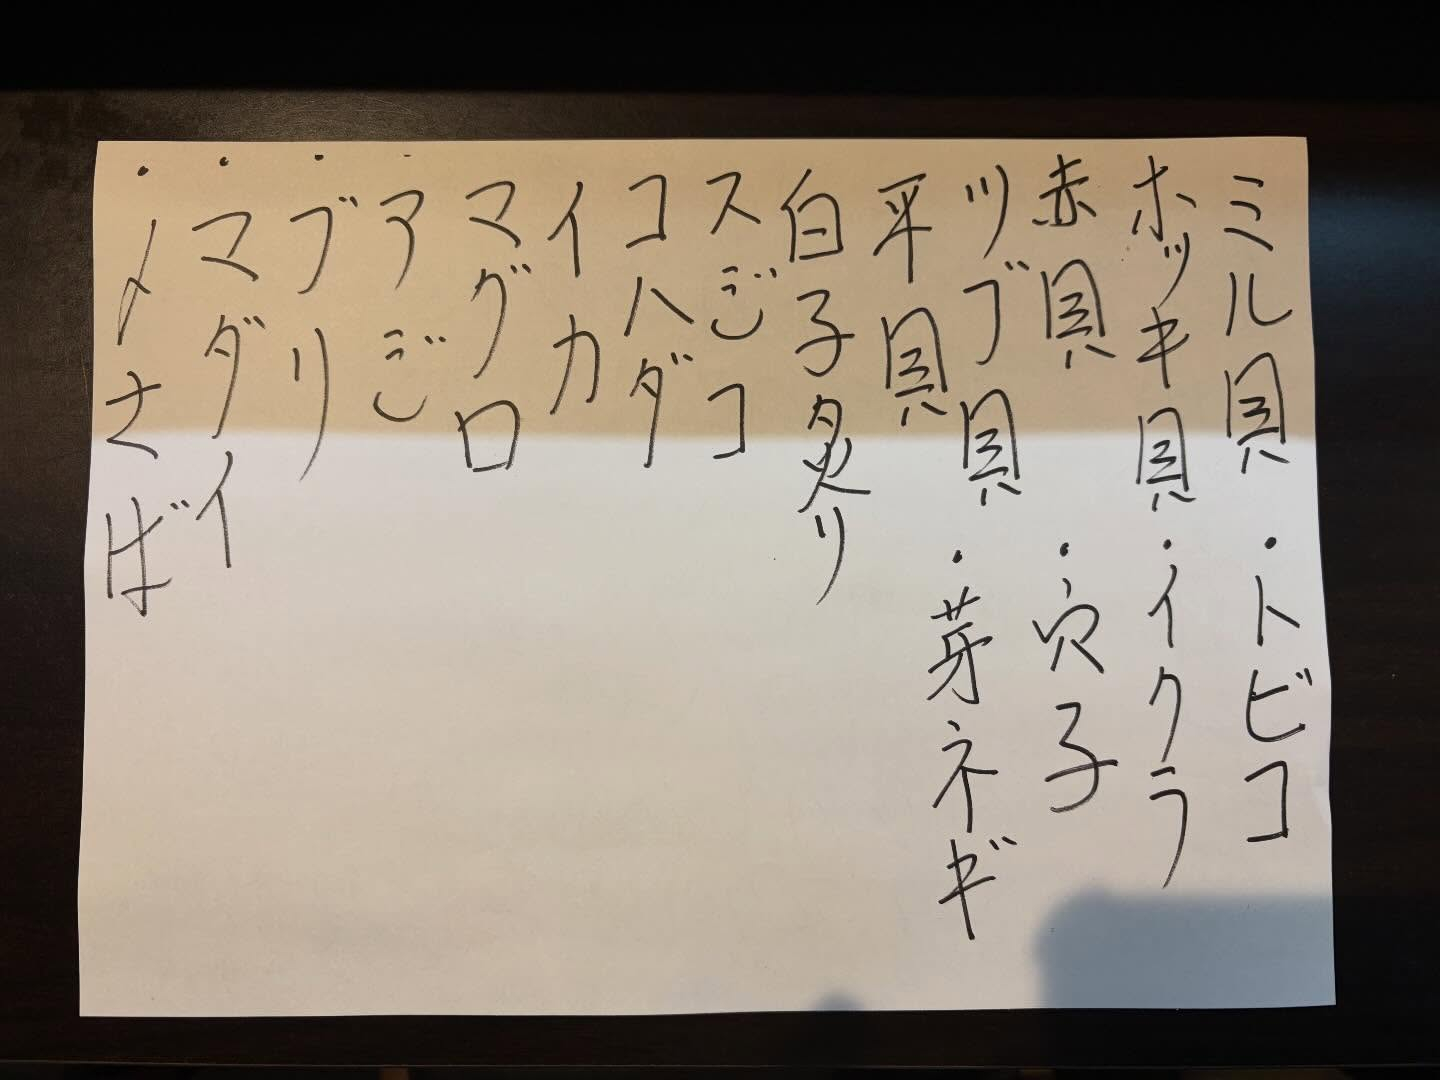 ミル貝 ・トビコ
ホッキ貝 ・イクラ
赤貝 ・穴子
ツブ貝 ・芽ネギ
平貝
白子炙り
スジコ
コハダ
イカ
マグロ
・アジ
・ブリ
・マダイ
・〆さば